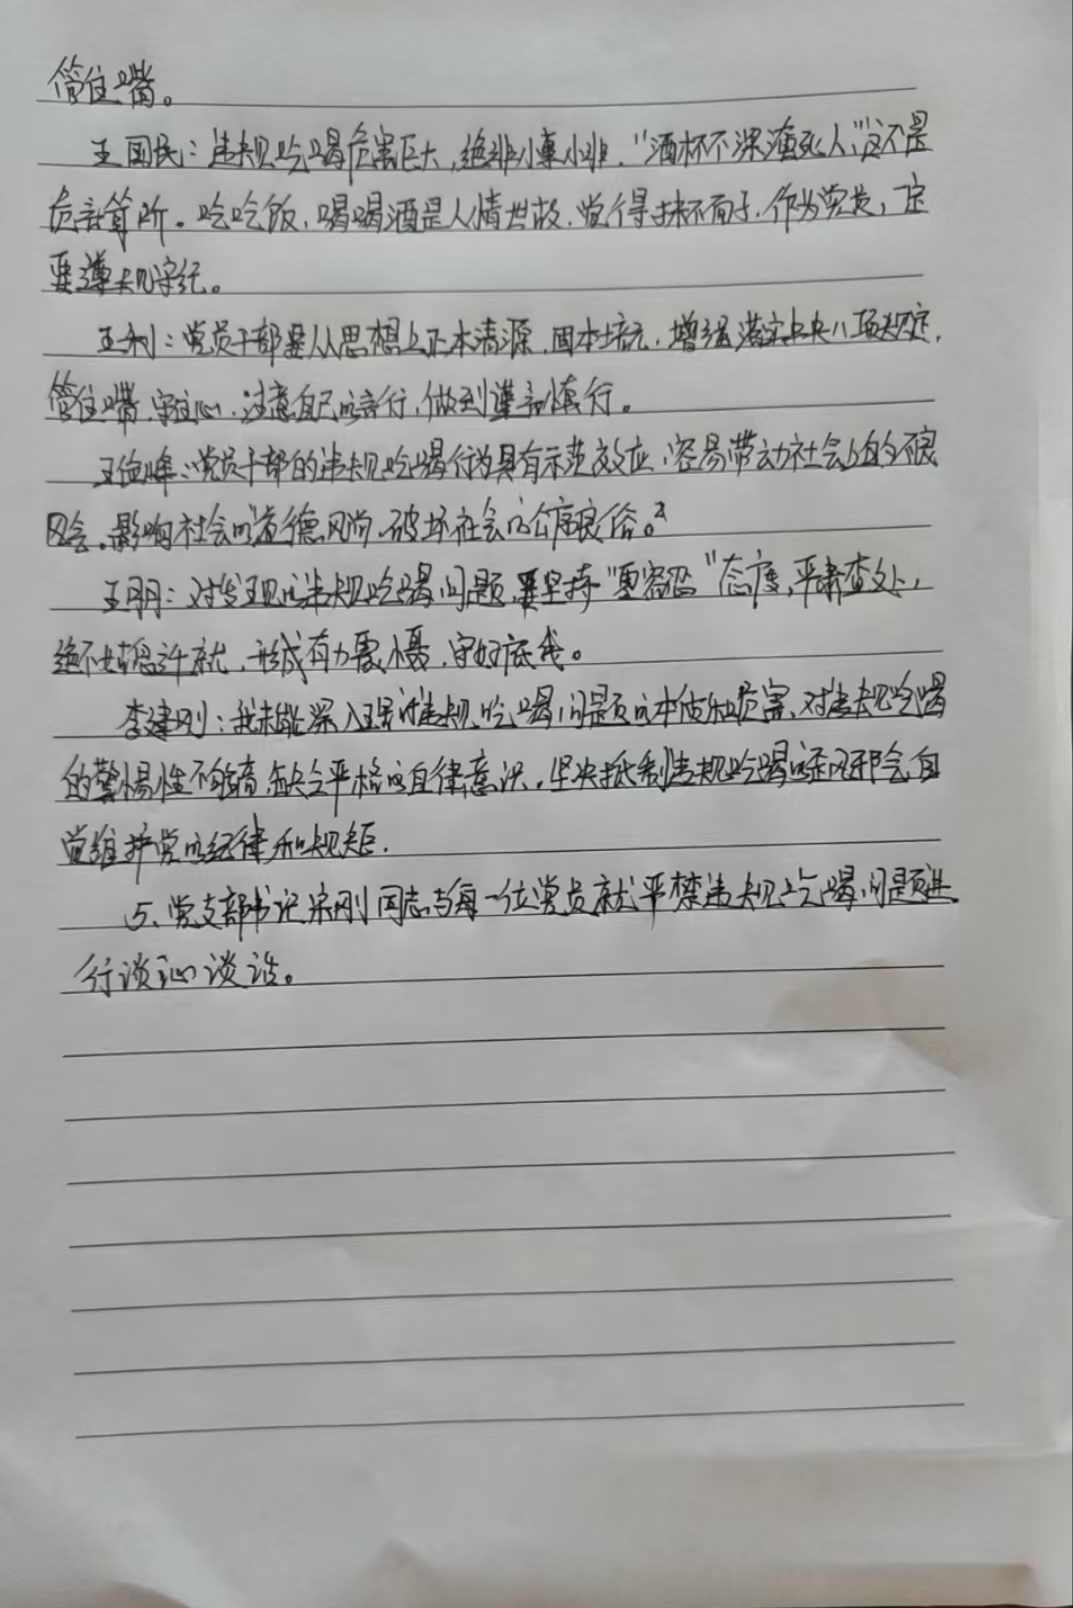 管住嘴。
王国民：违规吃喝危害巨大，绝非小事小非，“酒杯不深淹死人”，这不是
危言耸听。吃吃饭，喝喝酒是人情世故，觉得抹不开面子，作为党员，一定
要遵规守纪。
王利：党员干部要从思想上正本清源，固本培元，增强落实中央八项规定，
管住嘴，守住心，注意自己的言行，做到谨言慎行。
王俊峰：党员干部的违规吃喝行为具有示范效应，容易带动社会上的不良
风气，影响社会的道德风尚，破坏社会的公序良俗。
王朋：对发现的违规吃喝问题，要坚持“零容忍”态度，严肃查处，
绝不姑息迁就，形成有力震慑，守好底线。
李建刚：我未能深入理解违规吃喝问题的本质和危害，对违规吃喝
的警惕性不够高，缺乏严格的自律意识，坚决抵制违规吃喝的歪风邪气，自
觉维护党的纪律和规矩。
5、党支部书记宋刚同志与每一位党员就严禁违规吃喝问题进
行谈心谈话。